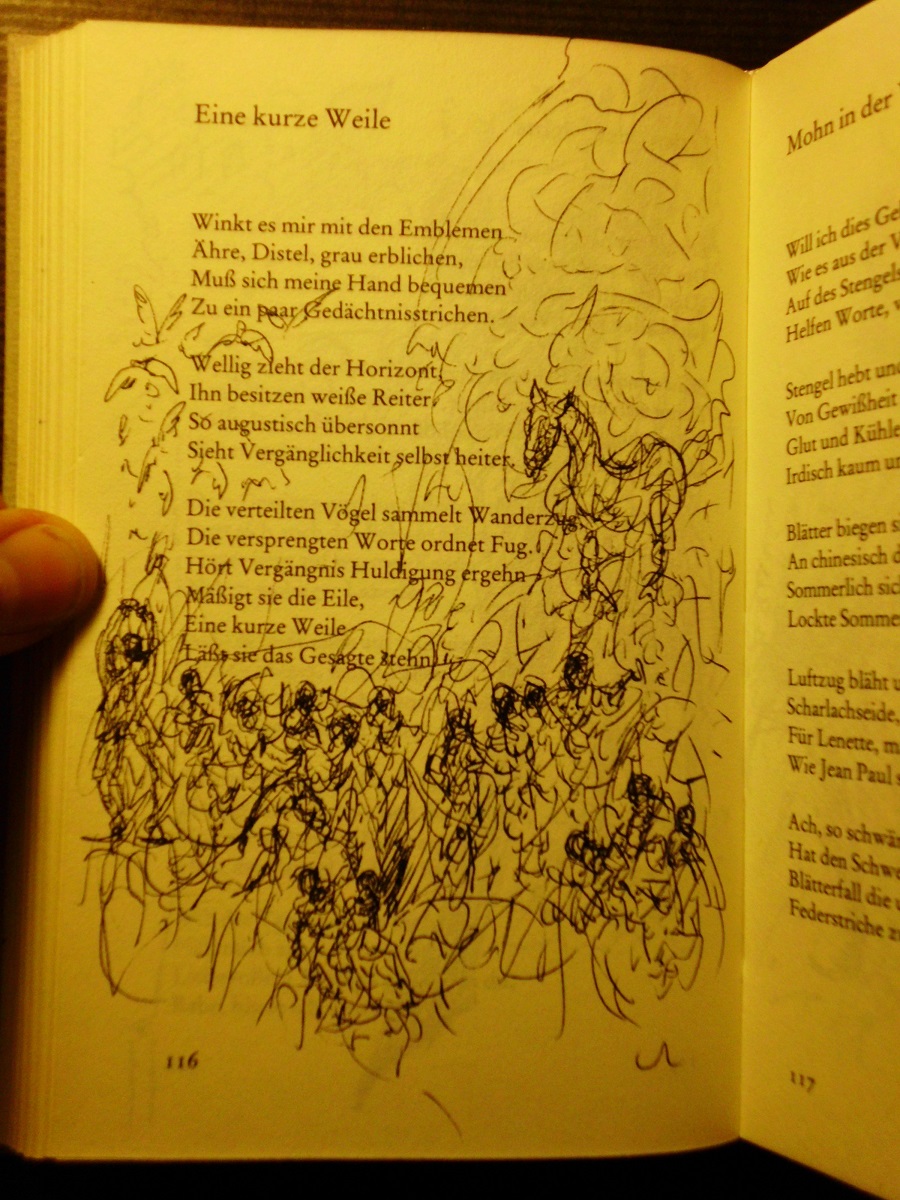 Eine kurze Weile
Winkt es mir mit den Emblemen
Ähre, Distel, grau erblichen,
Muß sich meine Hand bequemen
Zu ein paar Gedächtnisstrichen.
Wellig zieht der Horizont,
Ihn besitzen weiße Reiter,
So augustisch übersonnt
Sieht Vergänglichkeit selbst heiter.
Die verteilten Vögel sammelt Wanderzug,
Die versprengten Worte ordnet Fug.
Hört Vergängnis Huldigung ergehn
Mäßigt sie die Eile,
Eine kurze Weile
Läßt sie das Gesagte stehn.
116
Mohn in der
Will ich dies
Wie es aus der
Auf des Stengels
Helfen Worte,
Stengel hebt
Von Gewißheit
Glut und Kühle
Irdisch kaum
Blätter biegen
An chinesisch
Sommerlich
Lockte
Luftzug bläht
Scharlachseide,
Für Lenette,
Wie Jean Paul
Ach, so
Hat den
Blätterfall die
Federstriche
117